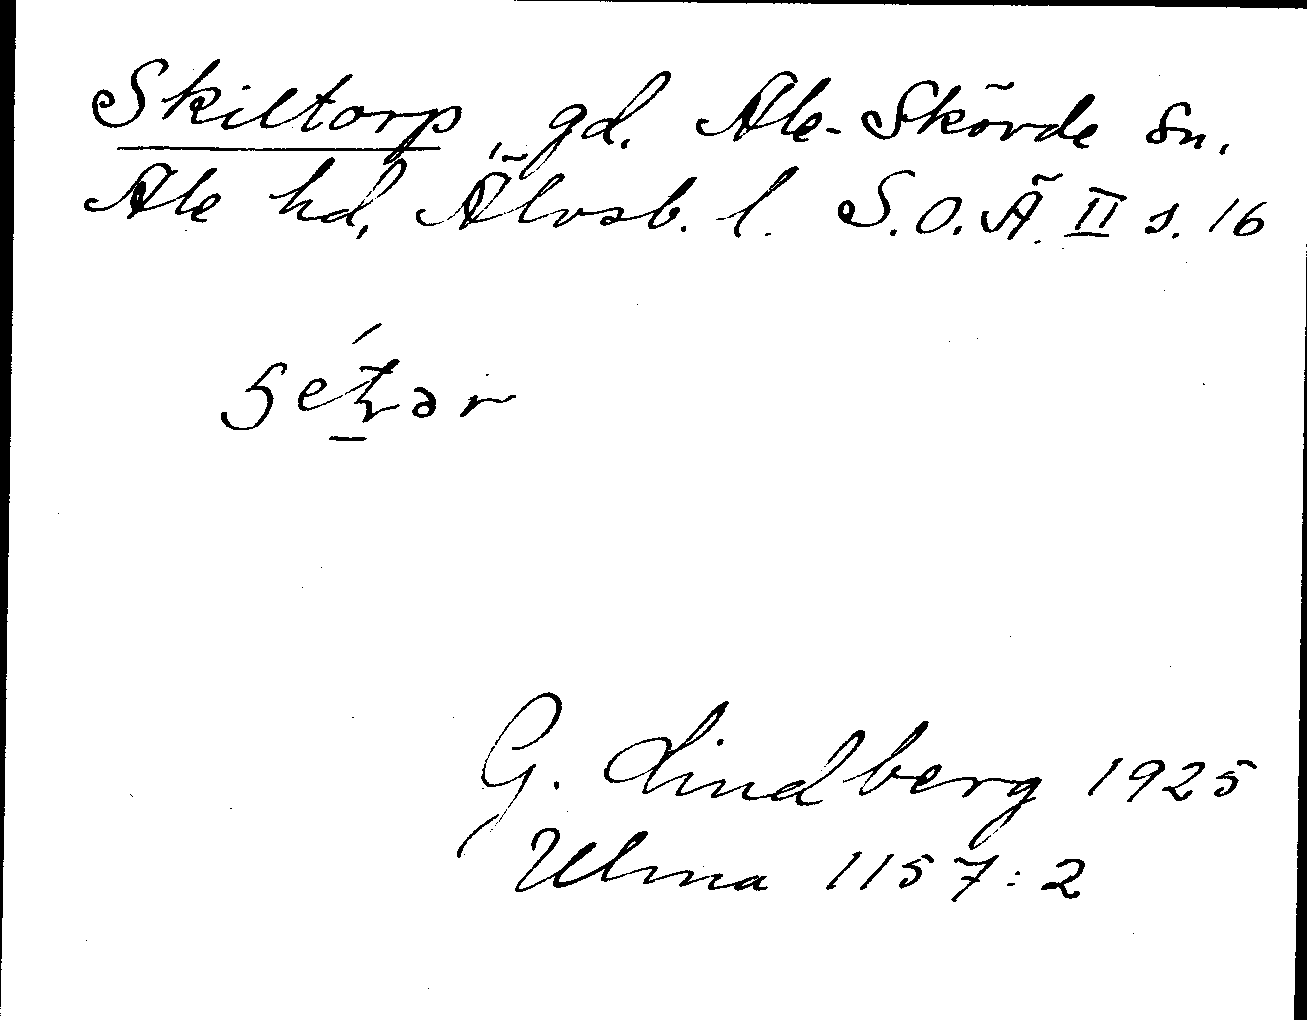 Skiltorp, gd. Ale-Skövde sn.
Ale hd, Älvsb. l. S.O.Ä. II s. 16
G. Lindberg 1925
Ulma 1157:2